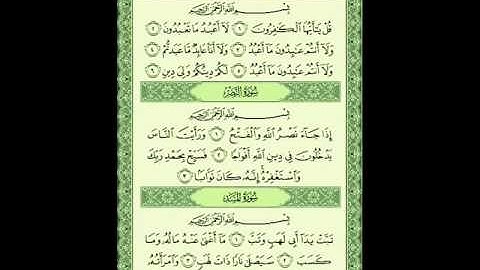 بِسْمِ اللَّهِ الرَّحْمَٰنِ الرَّحِيمِ
قُلْ يَٰٓأَيُّهَا ٱلْكَٰفِرُونَ ١ لَآ أَعْبُدُ مَا تَعْبُدُونَ ٢
وَلَآ أَنتُمْ عَٰبِدُونَ مَآ أَعْبُدُ ٣ وَلَآ أَنَا۠ عَابِدٌ مَّا عَبَدتُّمْ ٤
وَلَآ أَنتُمْ عَٰبِدُونَ مَآ أَعْبُدُ ٥ لَكُمْ دِينُكُمْ وَلِىَ دِينِ ٦
سُورَةُ النَّصْرِ
بِسْمِ اللَّهِ الرَّحْمَٰنِ الرَّحِيمِ
إِذَا جَآءَ نَصْرُ ٱللَّهِ وَٱلْفَتْحُ ١ وَرَأَيْتَ ٱلنَّاسَ
يَدْخُلُونَ فِى دِينِ ٱللَّهِ أَفْوَاجًا ٢ فَسَبِّحْ بِحَمْدِ رَبِّكَ
وَٱسْتَغْفِرْهُ إِنَّهُۥ كَانَ تَوَّابًۢا ٣
سُورَةُ المَسَدِ
بِسْمِ اللَّهِ الرَّحْمَٰنِ الرَّحِيمِ
تَبَّتْ يَدَآ أَبِى لَهَبٍ وَتَبَّ ١ مَآ أَغْنَىٰ عَنْهُ مَالُهُۥ وَمَا
كَسَبَ ٢ سَيَصْلَىٰ نَارًا ذَاتَ لَهَبٍ ٣ وَٱمْرَأَتُهُۥ